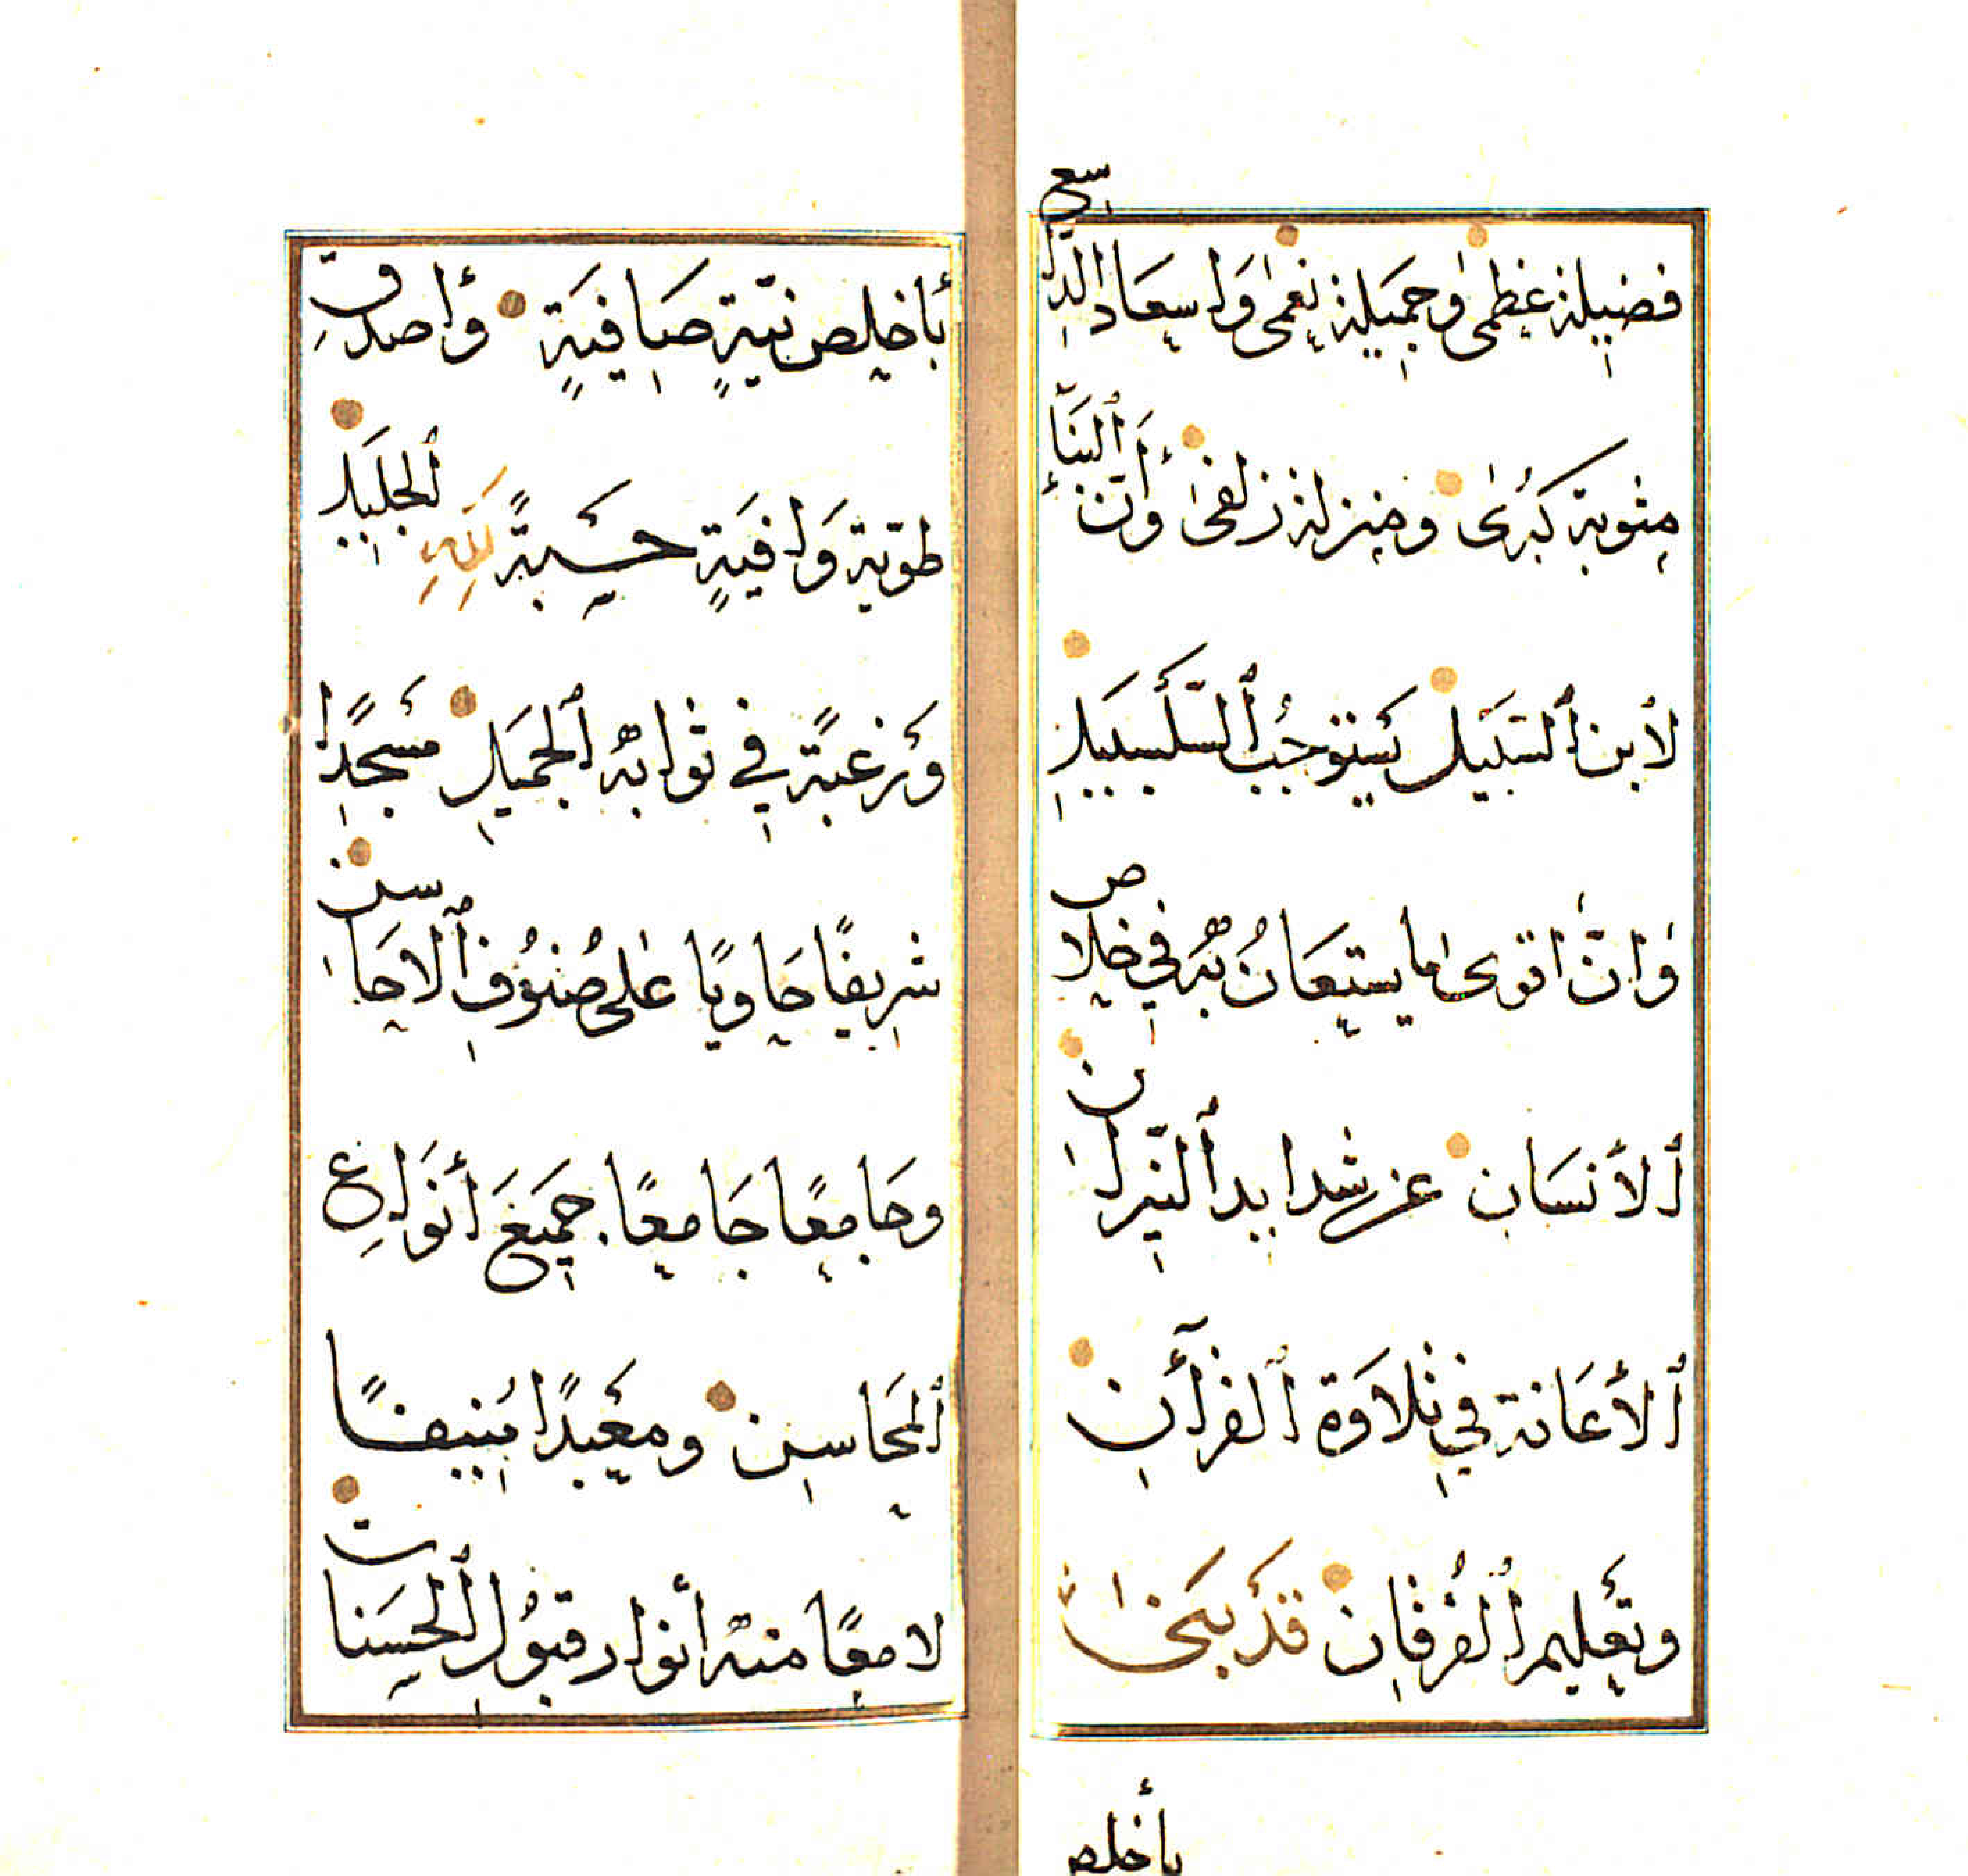 فضيلة عظمى وجميلة نعمى وإسعاد الذرايع
مثوبة كبرى ومنزلة زلفى وأنّ البناء
لابن السّبيل يستوجب السّلسبيل
وانّ اقوى ما يستعان به في خلاص
الأنسان عن شدايد النّيران
الأعانة في تلاوة القرآن
وتعليم الفرقان قد بنى
بأخلص
بأخلص نيّةٍ صافيةٍ وأصدق
طويّة وَافيَةٍ حسبةً لله الجليل
ورغبةً في ثوابه الجميل مسجدًا
شريفًا حاويًا على صنوف الاحاسن
وجامعًا جامعًا جميع أنواع
المحاسن ومعبدًا مُنيفًا
لامعًا منه أنوار قبول الحسنات